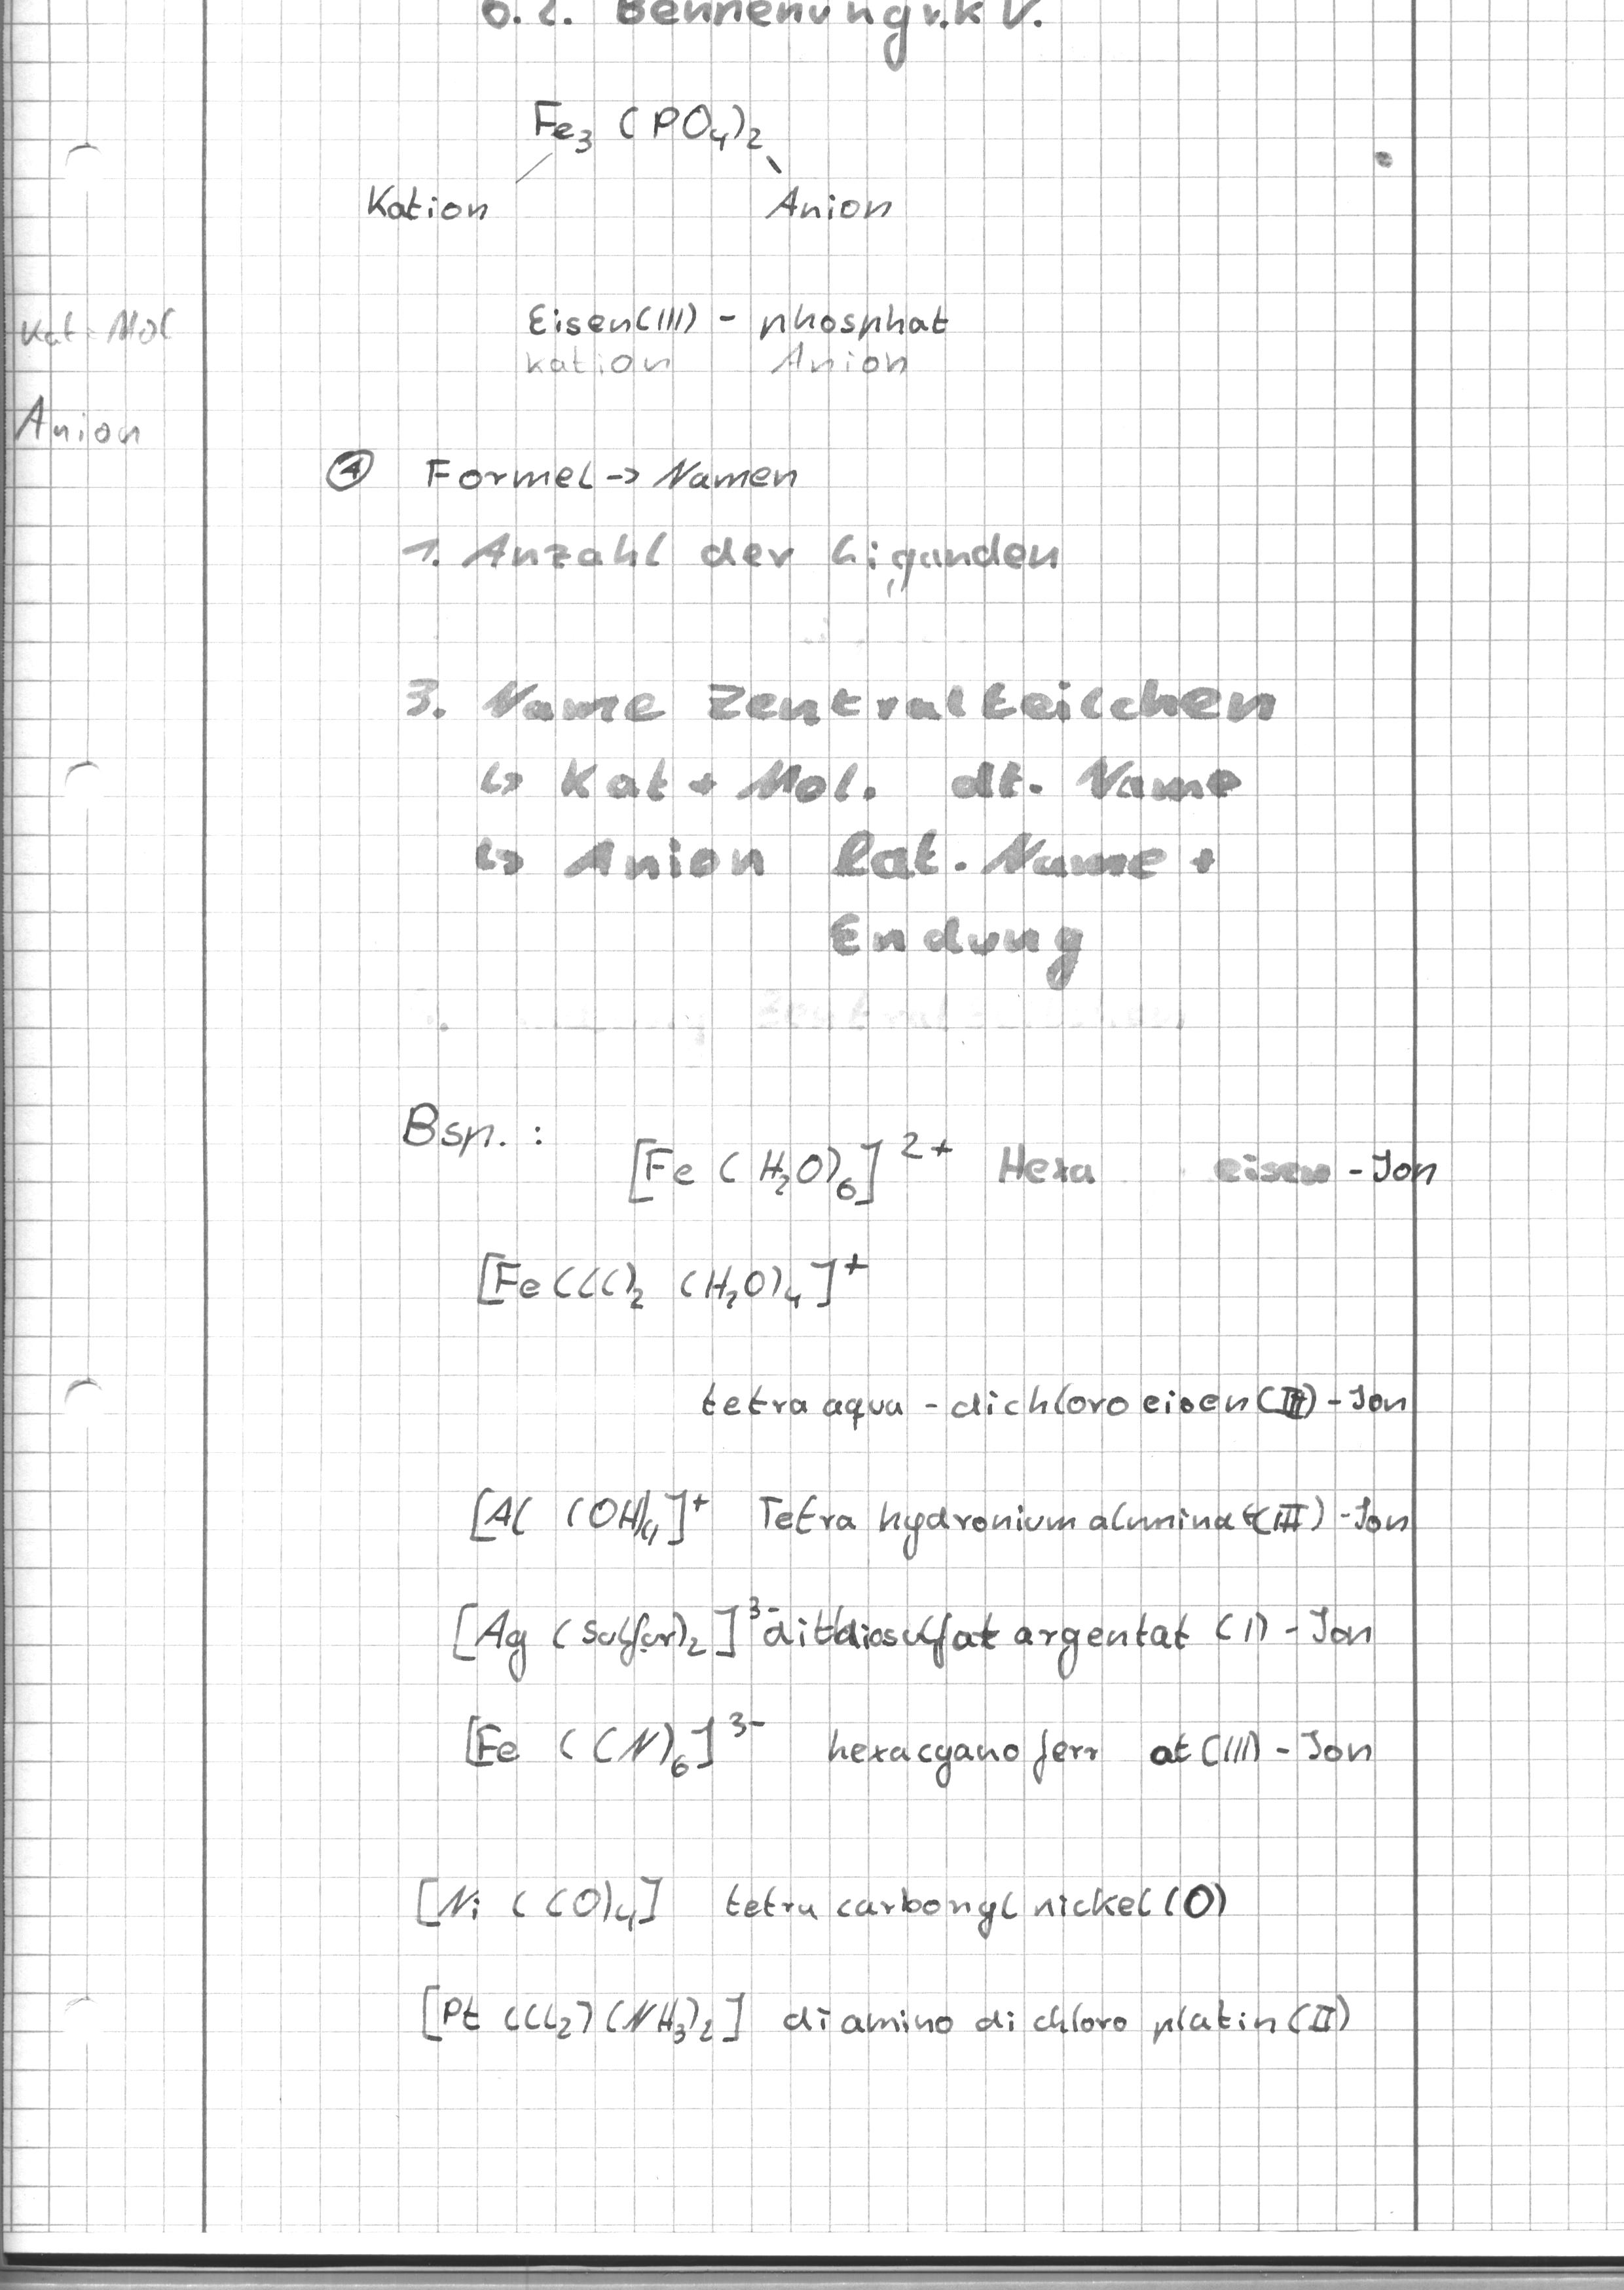 6.2. Bennenung v. k V.
Fe₃ (PO₄)₂
Kation Anion
Eisen(III) - phosphat
Kation Anion
Kat. Mol
Anion
① Formel -> Namen
1. Anzahl der Liganden
3. Name Zentralteilchen
↳ Kat + Mol. dt. Name
↳ Anion lat. Name +
Endung
Bsp.:
[Fe (H₂O)₆]²⁺ Hexa eisen - Ion
[Fe (Cl)₂ (H₂O)₄]⁺
tetra aqua - dichloro eisen (III) - Ion
[Al (OH)₄]⁺ Tetra hydronium aluminat (III) - Ion
[Ag (Sulfur)₂]³⁻ dithiosulfat argentat (I) - Ion
[Fe (CN)₆]³⁻ hexacyano ferr at (III) - Ion
[Ni (CO)₄] tetra carbonyl nickel (0)
[Pt (Cl₂) (NH₃)₂] diamino dichloro platin (II)